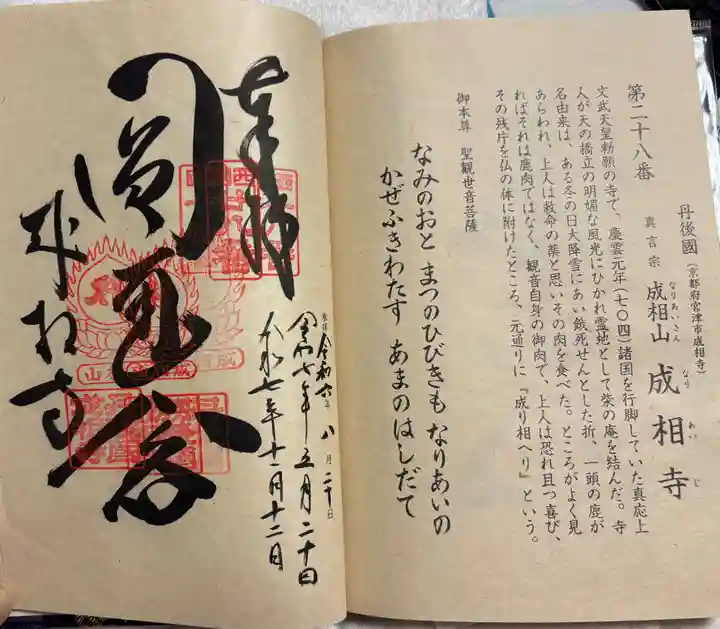 第二十八番
丹後國（京都府宮津市成相寺）
真言宗 成相山 成相寺
なりあいさん なりあいじ
文武天皇勅願の寺で、慶雲元年（七〇四）諸国を行脚していた真応上
人が天の橋立の明媚な風光にひかれ霊地として柴の庵を結んだ。寺
名由来は、ある冬の日大降雪にあい餓死せんとした折、一頭の鹿が
あらわれ、上人は救命の薬と思いその肉を食べた。ところがよく見
ればそれは鹿肉ではなく、観音自身の御肉で、上人は恐れ且つ喜び、
その残片を仏の体に附けたところ、元通りに『成り相へり』という。
御本尊 聖観世音菩薩
なみのおと まつのひびきも なりあいの
かぜふきわたす あまのはしだて
奉拝
令和六年八月二十日
令和七年五月二十四日
令和七年十一月十二日
圓通
成相寺